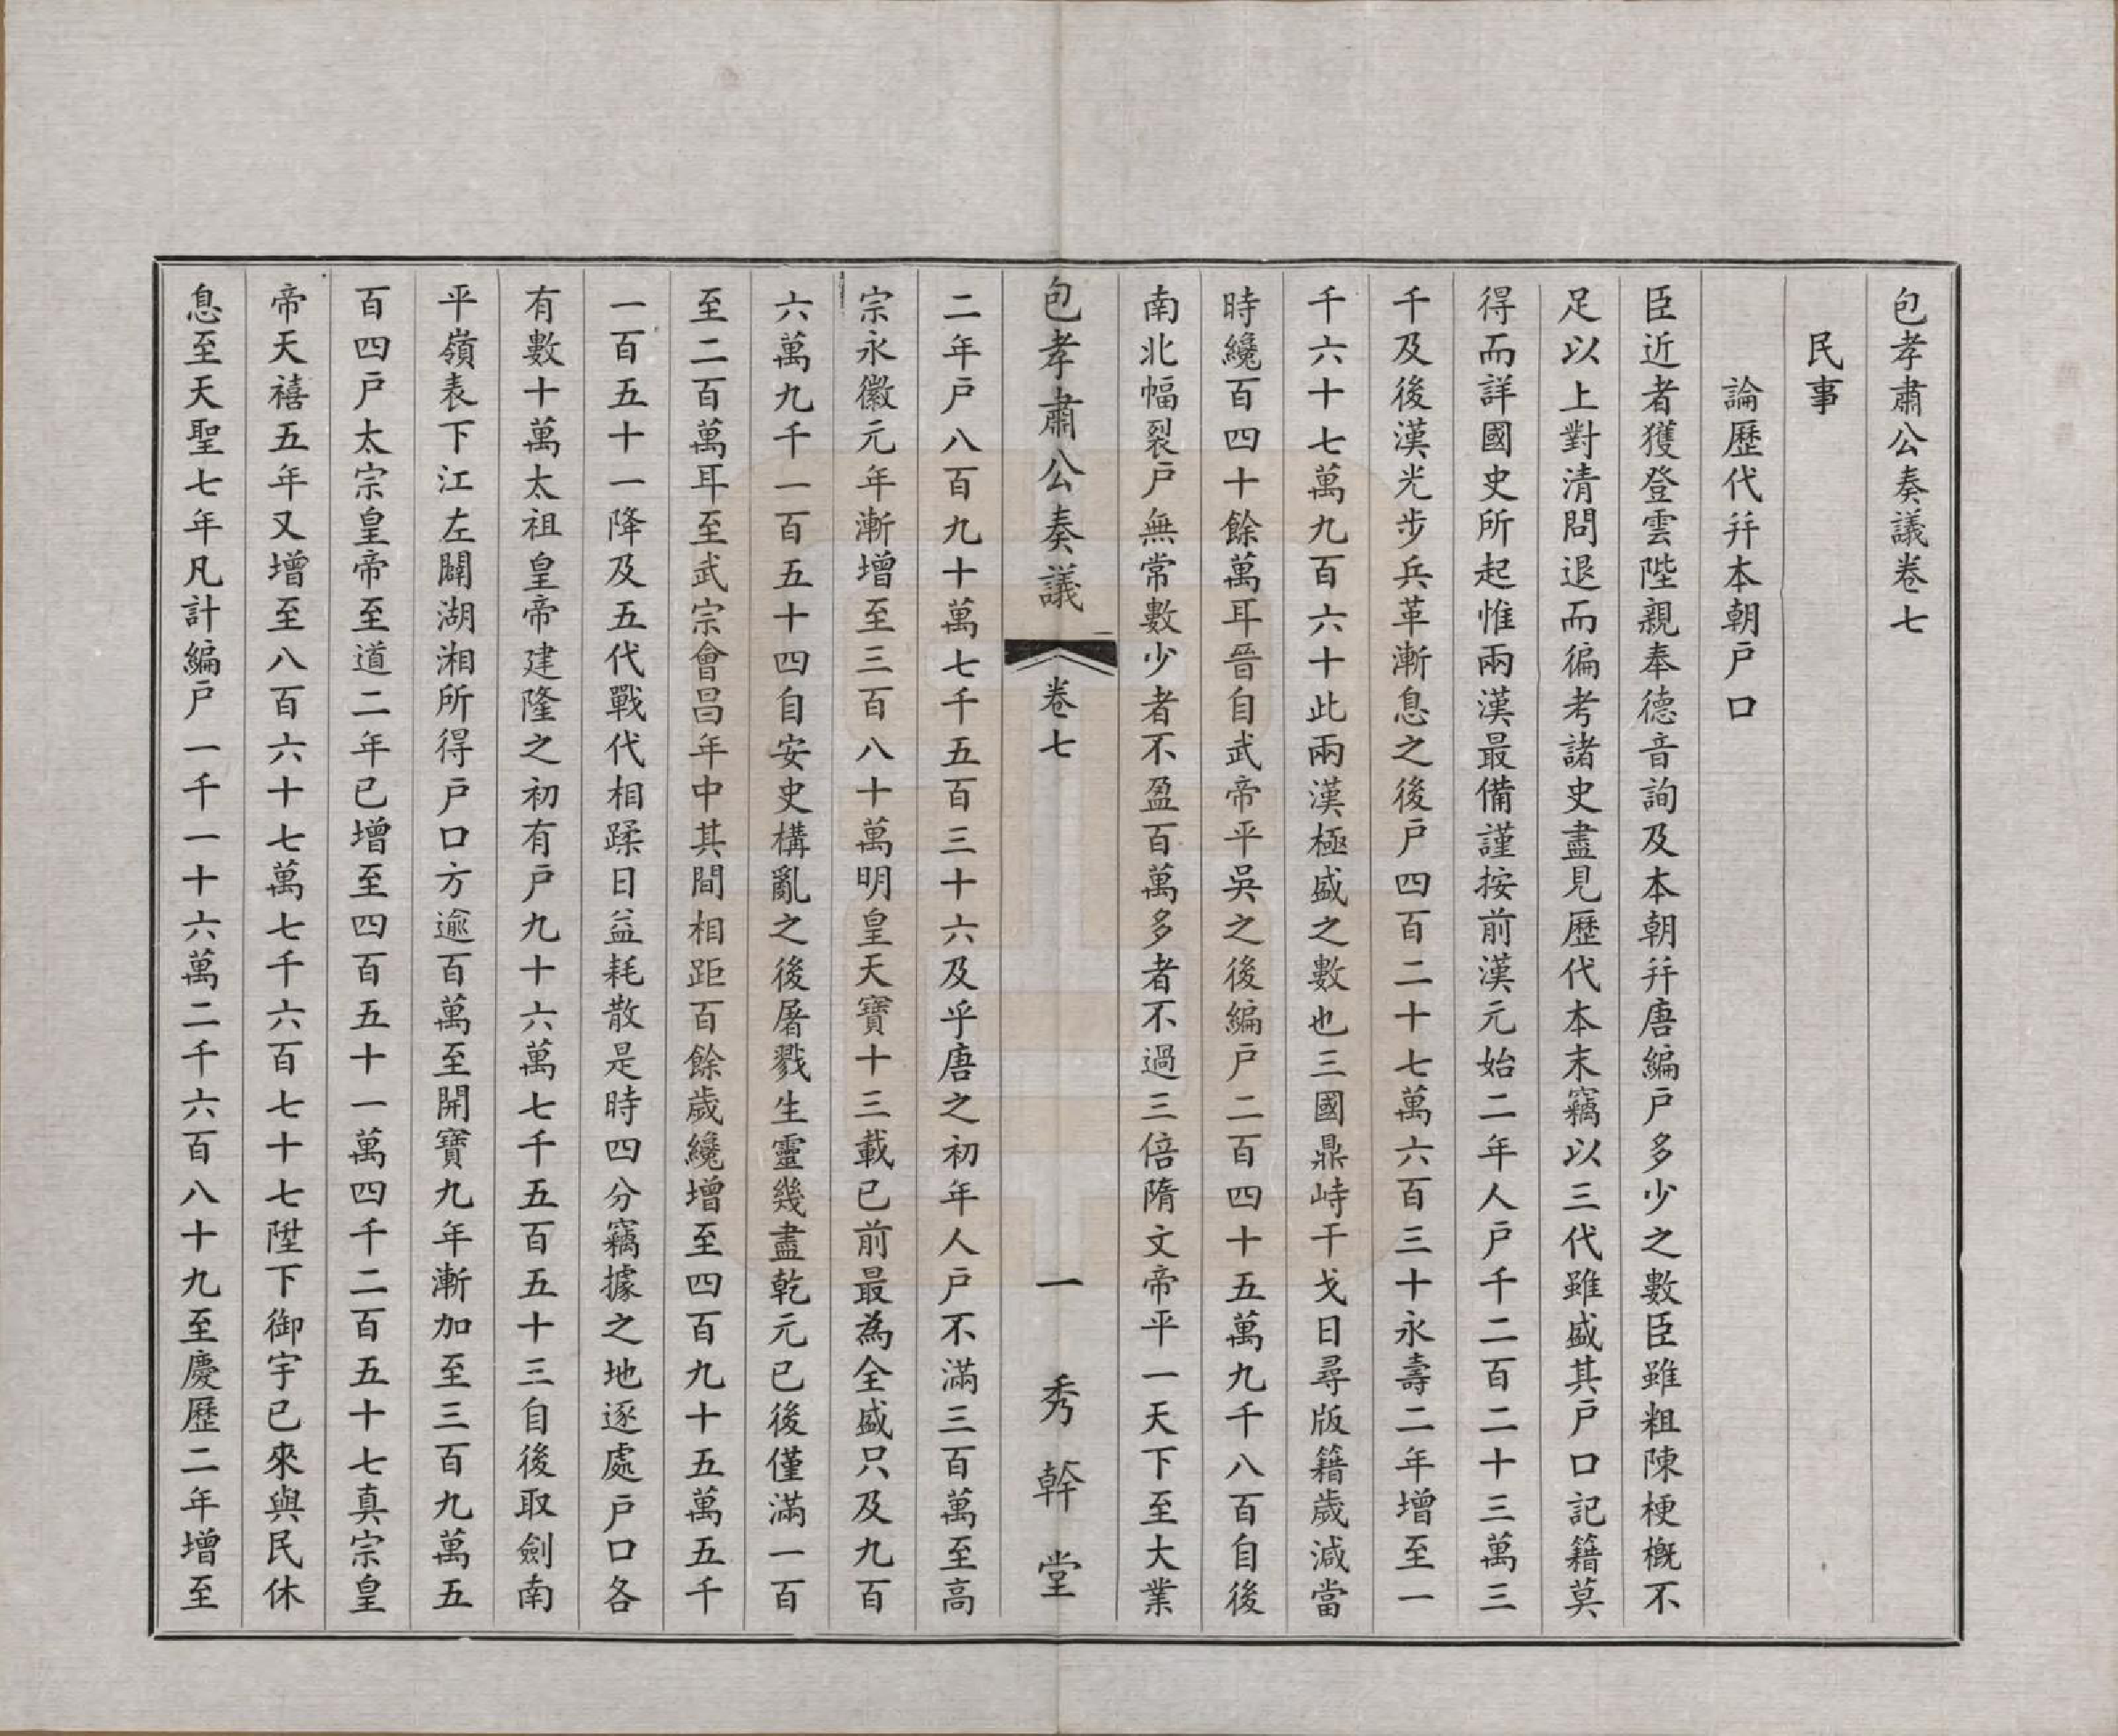 包孝肅公奏議卷七
民事
論歷代并本朝戸口
臣近者獲登雲陛親奉德音詢及本朝并唐編戸多少之數臣雖粗陳梗概不
足以上對清問退而徧考諸史盡見歷代本末竊以三代雖盛其戸口記籍莫
得而詳國史所起惟兩漢最備謹按前漢元始二年人戸千二百二十三萬三
千及後漢光步兵革漸息之後戸四百二十七萬六百三十永壽二年增至一
千六十七萬九百六十此兩漢極盛之數也三國鼎峙干戈日尋版籍歲減當
時纔百四十餘萬耳晉自武帝平吳之後編戸二百四十五萬九千八百自後
南北幅裂戸無常數少者不盈百萬多者不過三倍隋文帝平一天下至大業
包孝肅公奏議 卷七 一 秀幹堂
二年戸八百九十萬七千五百三十六及乎唐之初年人戸不滿三百萬至高
宗永徽元年漸增至三百八十萬明皇天寶十三載已前最為全盛只及九百
六萬九千一百五十四自安史構亂之後屠戮生靈幾盡乾元已後僅滿一百
至二百萬耳至武宗會昌年中其間相距百餘歲纔增至四百九十五萬五千
一百五十一降及五代戰代相蹂日益耗散是時四分竊據之地逐處戸口各
有數十萬太祖皇帝建隆之初有戸九十六萬七千五百五十三自後取劍南
平嶺表下江左闢湖湘所得戸口方逾百萬至開寶九年漸加至三百九萬五
百四戸太宗皇帝至道二年已增至四百五十一萬四千二百五十七真宗皇
帝天禧五年又增至八百六十七萬七千六百七十七陞下御宇已來與民休
息至天聖七年凡計編戸一千一十六萬二千六百八十九至慶歷二年增至